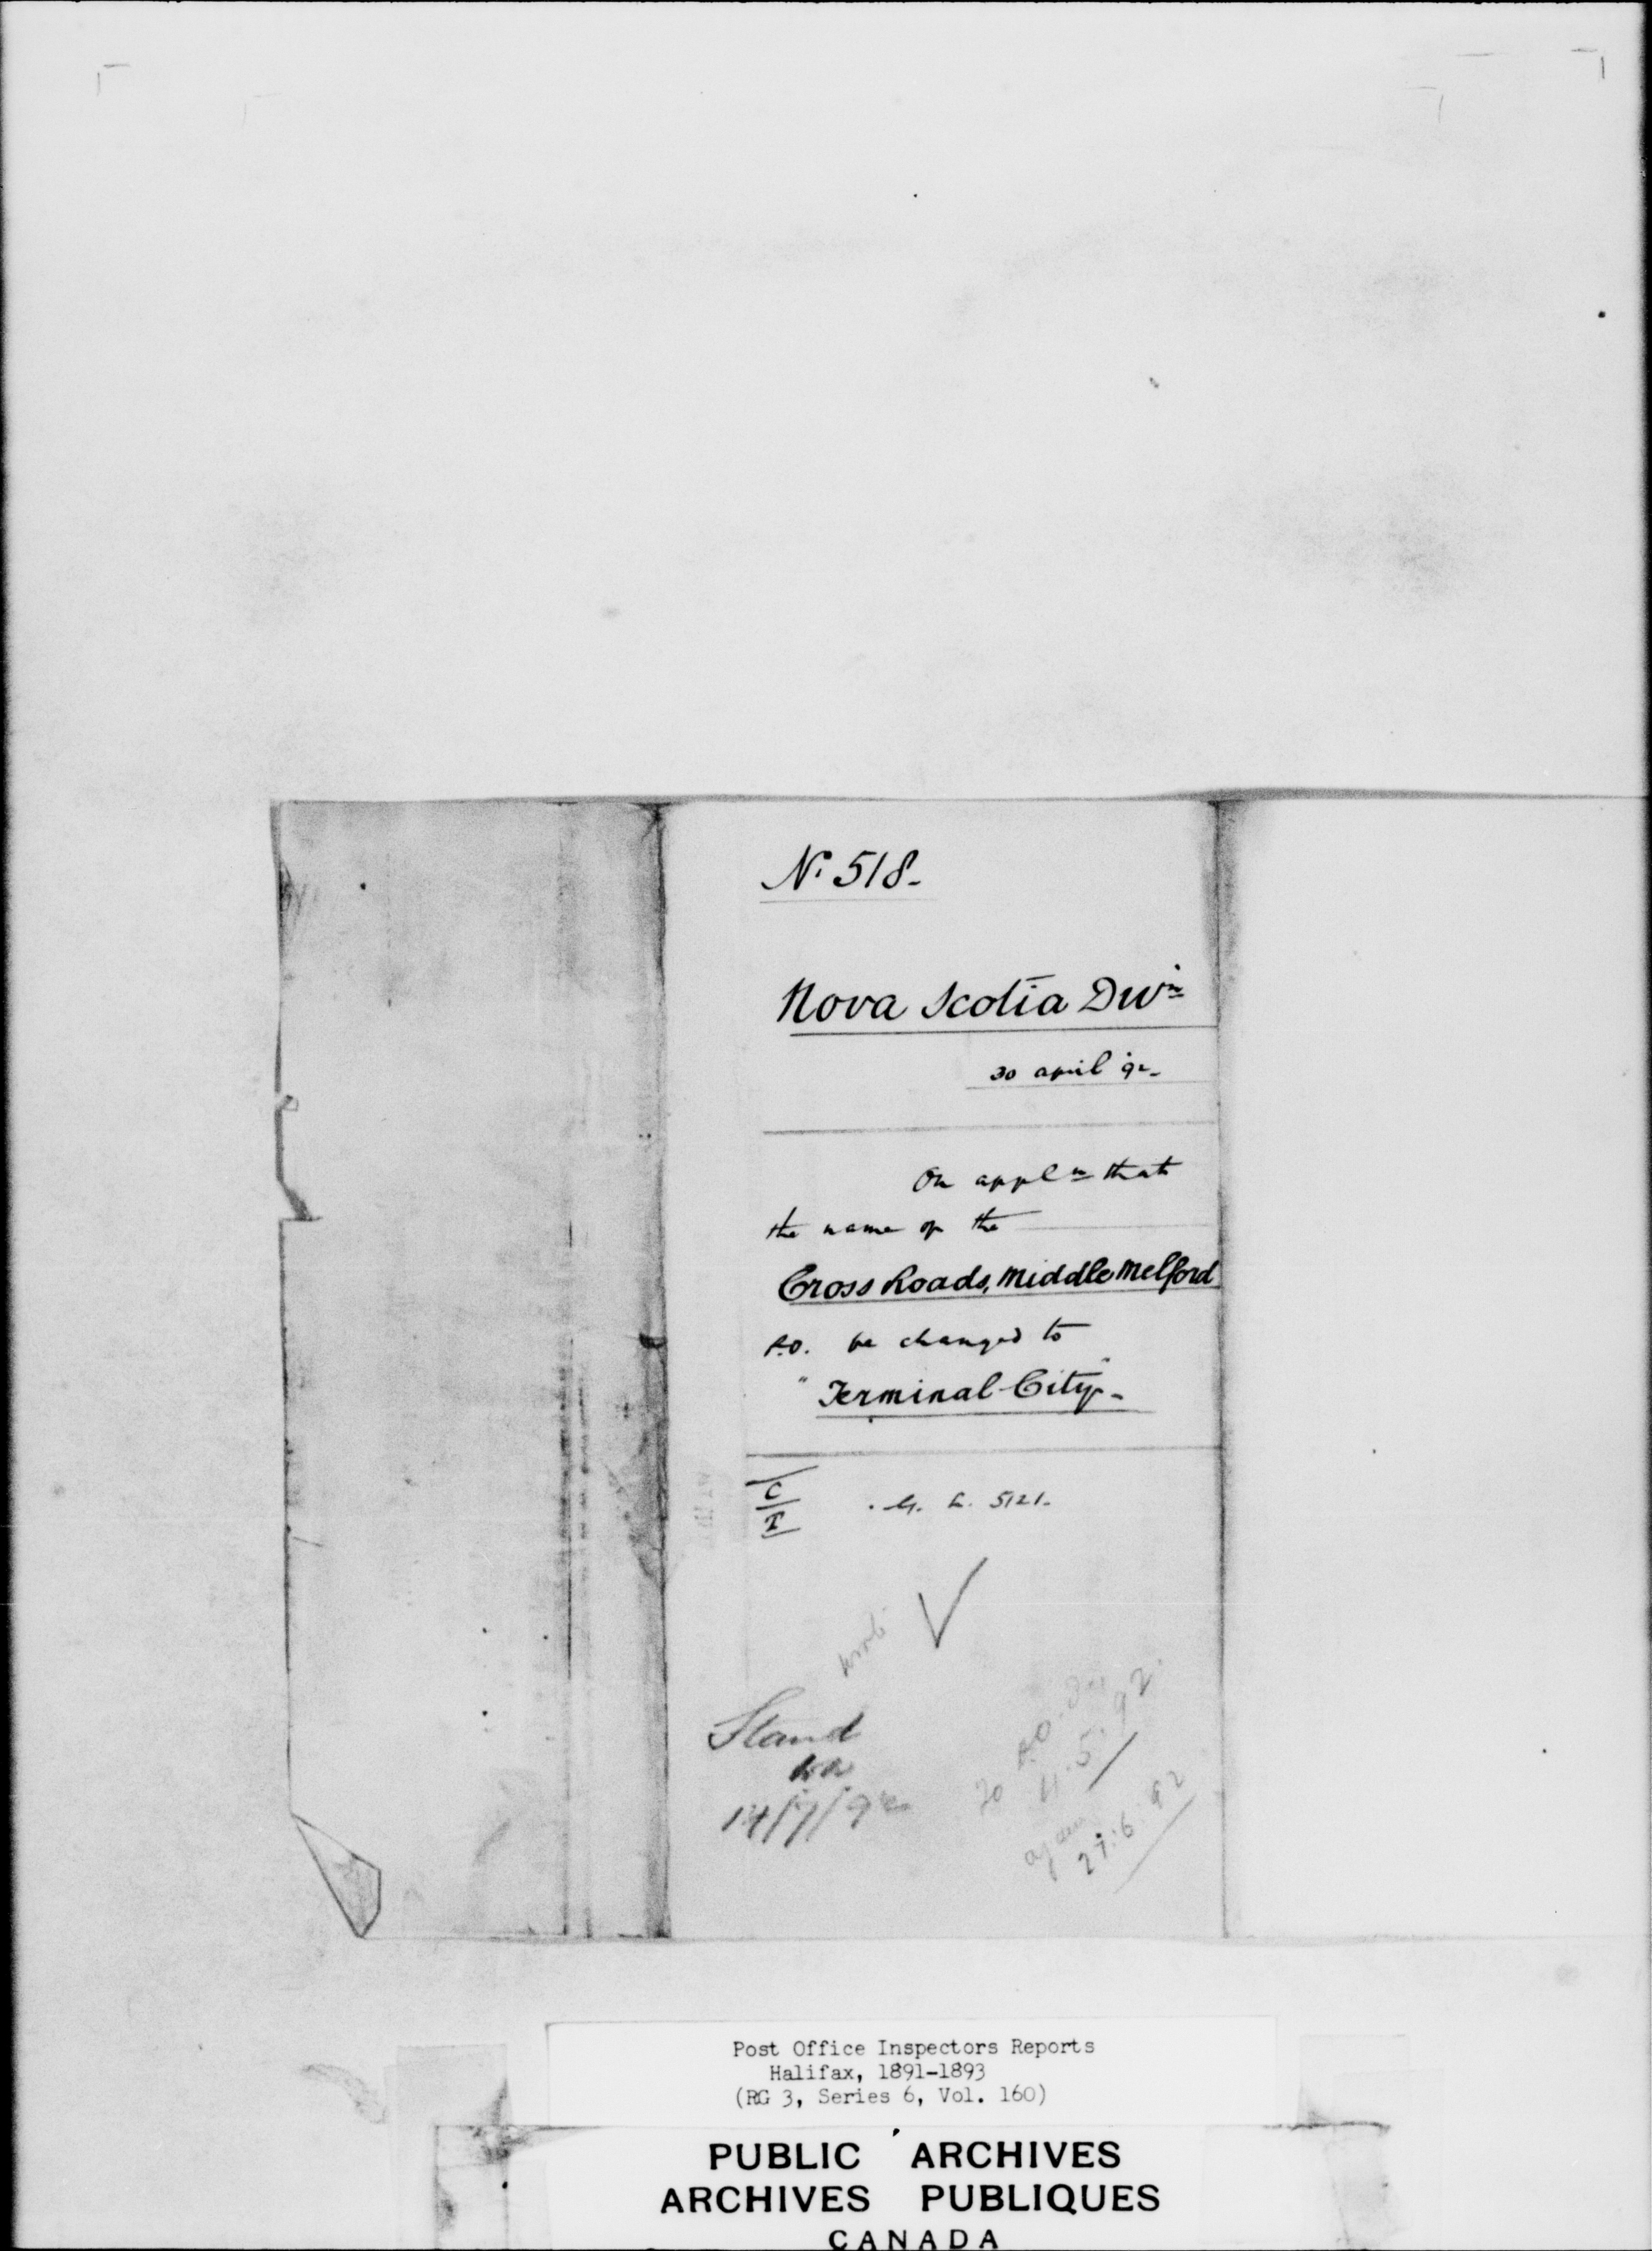 No. 518-
Nova Scotia Divn
30 april 92-
On appln that
the name of the
Cross Roads, Middle Melford
P.O. be changed to
"Terminal City"-
C
T
L. 5121-
Stand
14/7/92
To P.O.
5.92.
27.6.92
Post Office Inspectors Reports
Halifax, 1891-1893
(RG 3, Series 6, Vol. 160)
PUBLIC ARCHIVES
ARCHIVES PUBLIQUES
CANADA